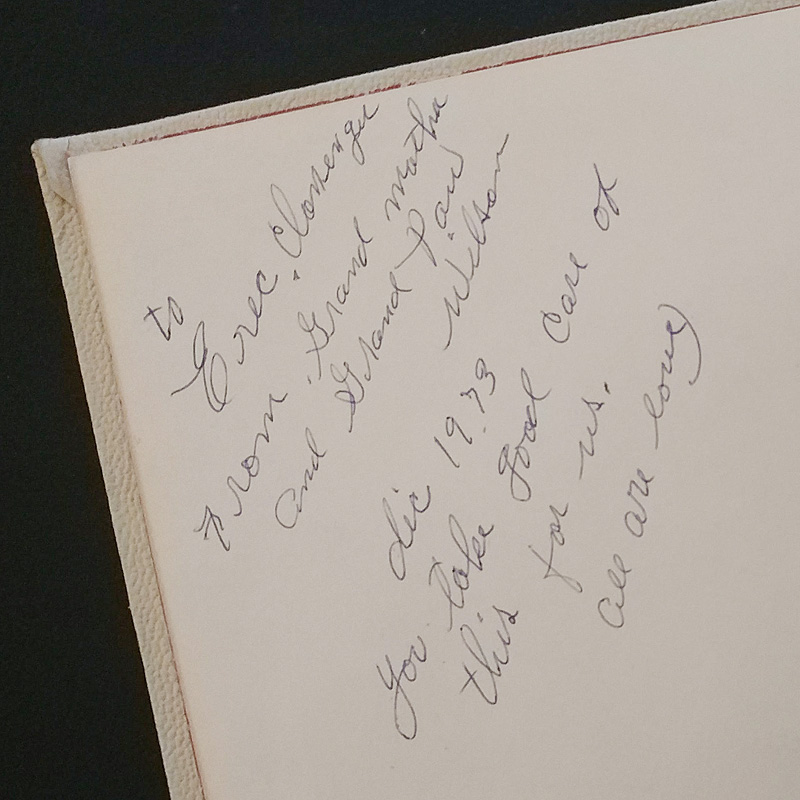 to
Erec. Clossenger
From. Grand Motha
and Grand Paw
Wilson
dic 19.73
You take Good Care of
this for us.
all are love